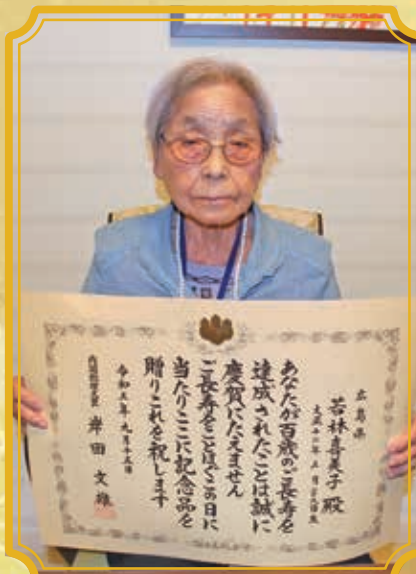 広島県
若林喜美子 殿
大正十二年
あなたが百歳のご長寿を
達成されたことは誠に
慶賀にたえません
ご長寿をことほぎこの日に
当たりここに記念品を
贈りこれを祝します
令和五年九月十五日
内閣総理大臣 岸田文雄